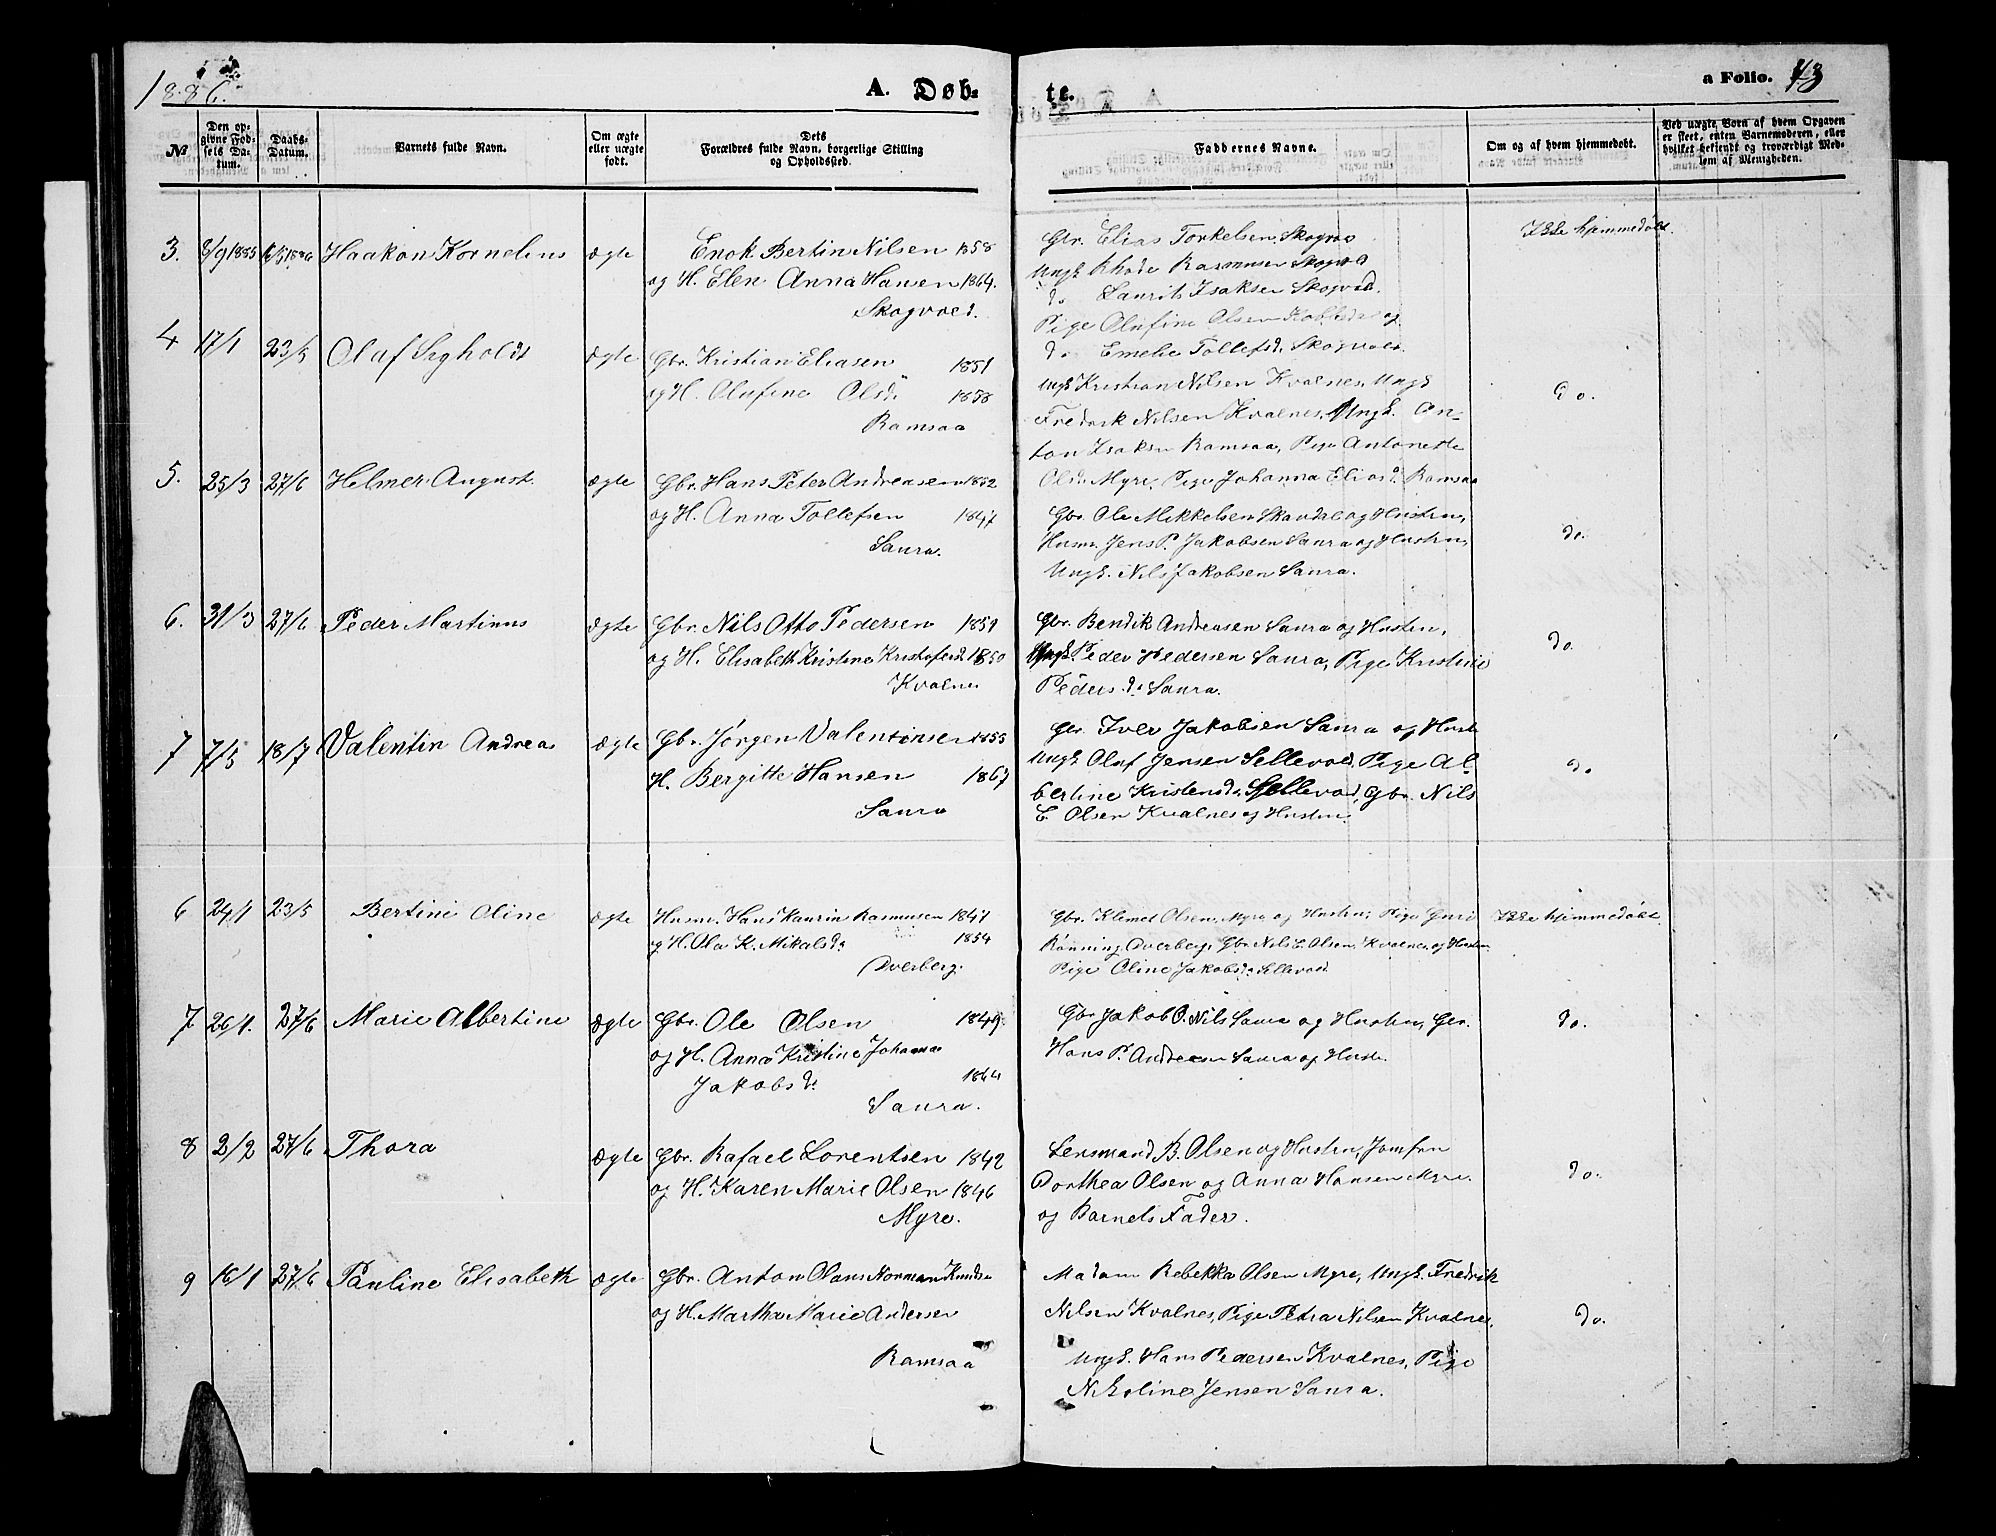 1886.
A. Døb-
te.
a Folio. 43
№
Den op-
givne Fød-
sels Da-
tum.
Daabs-
Datum.
Barnets fulde Navn.
Om ægte
eller uægte
født.
Dets
Forældres fulde Navn, borgerlige Stilling
og Opholdssted.
Faddernes Navne.
Om og af hvem hjemmedøbt.
Ved uægte Børn af hvem Opgaven
er skeet, enten Barnemoderen, eller
hvilket bekjendt og troværdigt Med-
lem af Menigheden.
3. 8/9 1885 Haakon Kornelius ægte Enok Bertin Nilsen 1858
og H. Elen Anna Hansen 1864.
Skogvold.
Gbr. Elias Torkelsen Skogvold
Ungk. Rhode Rasmussen Skogvold
do Laurits Isaksen Skogvold.
Pige Olufine Olsen og
do Emelie Tollefsd. Skogvold.
Ikke hjemmedøbt.
4 17/1 23/5 Olaf Sigholdt ægte Gbr. Kristian Eliasen 1851
og H. Olufine Olsd. 1858
Ramsaa
Ungk Kristian Nilsen Kvalnes, Ungk
Fredrik Nilsen Kvalnes, Ungk. An-
ton Isaksen Ramsaa, Pige Antonette
Olsd. Myre, Pige Johanna Eliasd. Ramsaa
do.
5. 25/3 27/6 Helmer August ægte Gbr. Hans Peter Andreasen 1852
og H. Anna Tollefsen 1847
Saura.
Gbr. Ole Mikkelsen Skavdal og Hustru,
Husm. Jens P. Jakobsen Saura og Hustru,
Ungk. Nils Jakobsen Saura.
do.
6. 31/3 27/6 Peder Martinus ægte Gbr. Nils Otto Pedersen 1851
og H. Elisabeth Kristine Kristofersd. 1850
Kvalnes
Gbr. Bendik Andreasen Saura og Hustru,
Ungk. Peder Pedersen Saura, Pige Kristine
Pedersd. Saura.
do.
7 7/5 18/7 Valentin Andreas ægte Gbr. Jørgen Valentinsen 1855
H. Bergitte Hansen 1867
Saura
Gbr. Iver Jakobsen Saura og Hustr
Ungk Oluf Jensen Sellevold, Pige Al-
bertine Kristensd. Sellevold, Gbr. Nils
E. Olsen Kvalnes og Hustru.
do
6 24/1 23/5 Bertine Oline ægte Husm. Hans Kaurin Rasmussen 1847
og H. Ola K. Mikalsd. 1854
Dverberg.
Gbr. Klemet Olsen Myre og Hustru, Pige Guri
Rønning Dverberg, Gbr. Nils E. Olsen Kvalnes og Hustru
Pige Oline Jakobsd. Sellevold
Ikke hjemmedøbt.
7 26/1. 27/6 Marie Albertine ægte Gbr. Ole Olsen 1849.
og H. Anna Kristine Johanna
Jakobsd. 1864
Saura.
Gbr Jakob O. Nils Saura og Hustru, Gbr.
Hans P. Andreasen Saura og Hustr.
do.
8 2/2 27/6 Thora ægte Gbr. Rafael Lorentsen 1842
og H. Karen Marie Olsen 1846
Myre.
Lensmand B. Olsen og Hustru, Jomfru
Dorthea Olsen og Anna Hansen Myre
og Barnets Fader.
do.
9 16/1 27/6 Pauline Elisabeth ægte Gbr. Anton Olaus Norman Knudsen
og H. Martha Marie Andersen
Ramsaa
Madam Rebekka Olsen Myre, Ungk. Fredrik
Nilsen Kvalnes, Pige Petra Nilsen Kvalnes,
Ungk. Hans Pedersen Kvalnes, Pige
Nikoline Jensen Saura.
do.